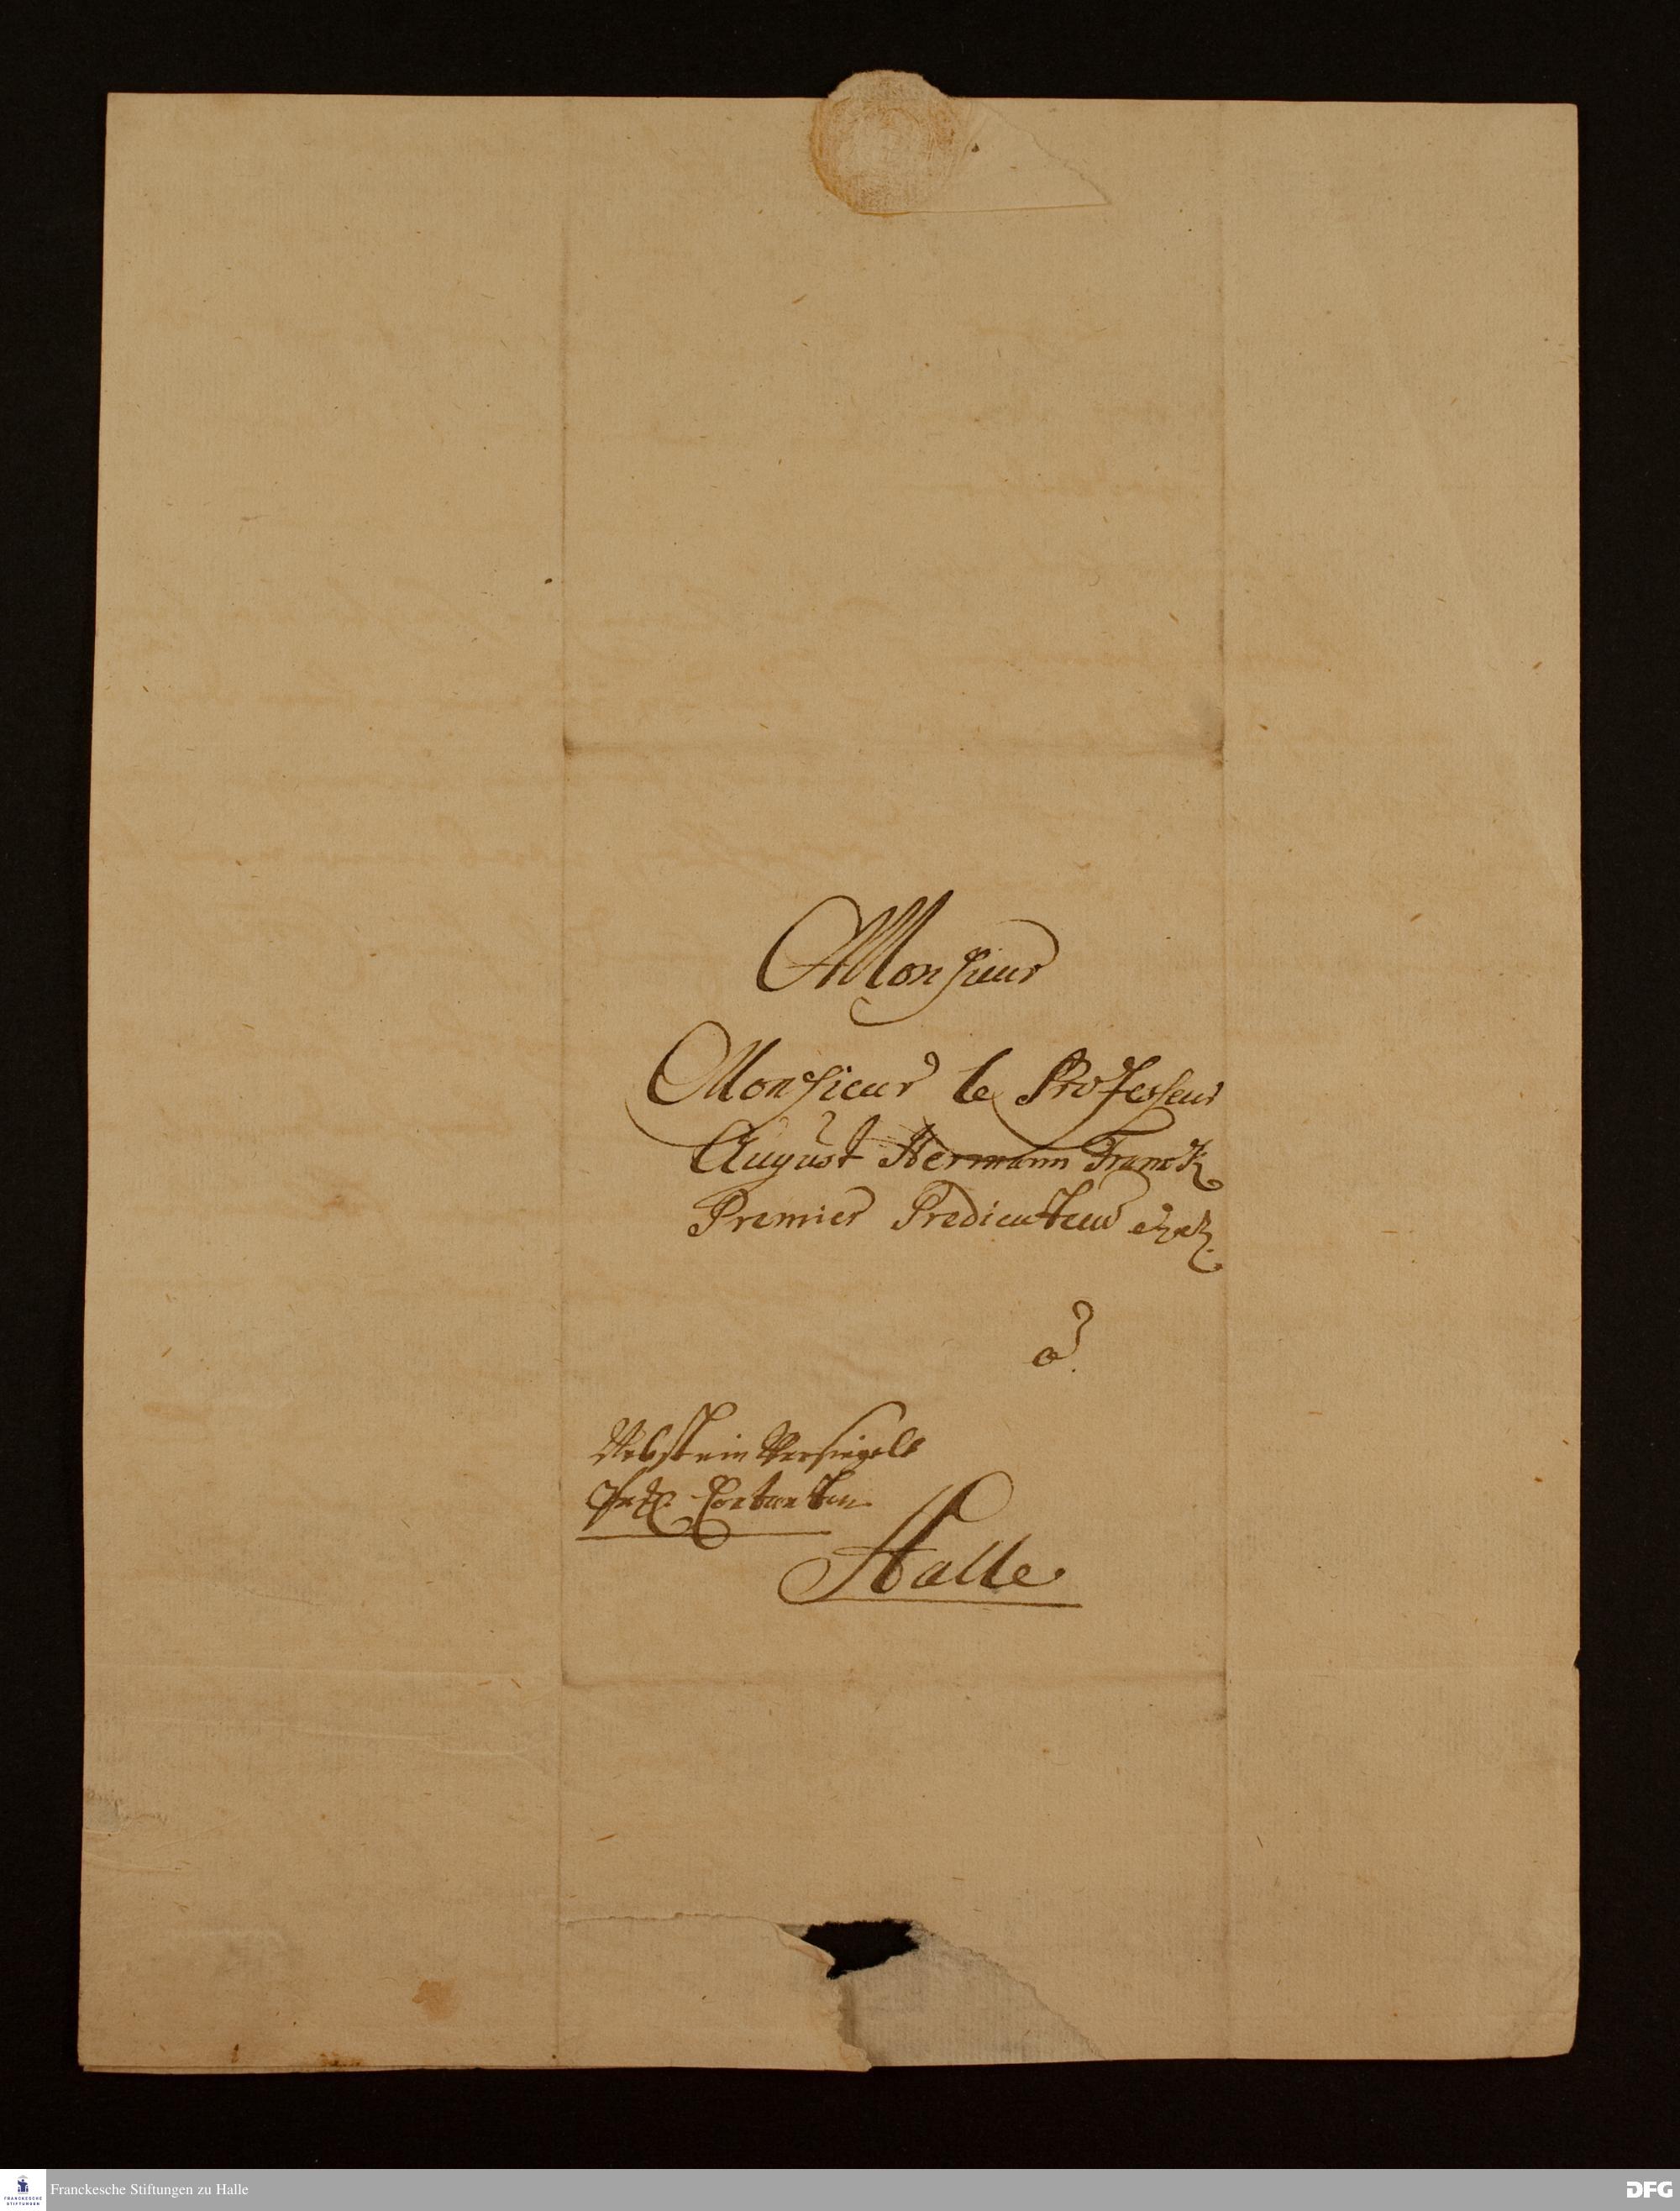 Monsieur
Monsieur le Professeur
August Hermann Franck
Premier Predicateur etz etz.
à
Nebst ein Versiegelt
Halle.
Franckesche Stiftungen zu Halle
FRANCKESCHE
STIFTUNGEN
DFG